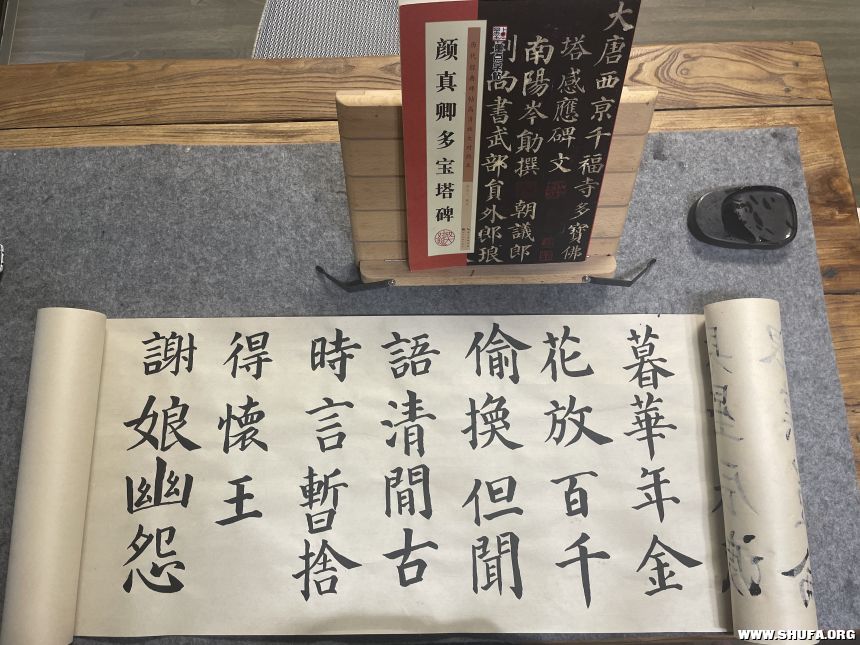 大唐西京千福寺多寶佛
塔感應碑文
南陽岑勛撰 朝議郎
判尚書武部員外郎琅
历代经典碑帖高清放大对照本
颜真卿多宝塔碑
暮華年金
花放百千
偷換但聞
語清閒古
時言暫捨
得懷王
謝娘幽怨
WWW.SHUFA.ORG